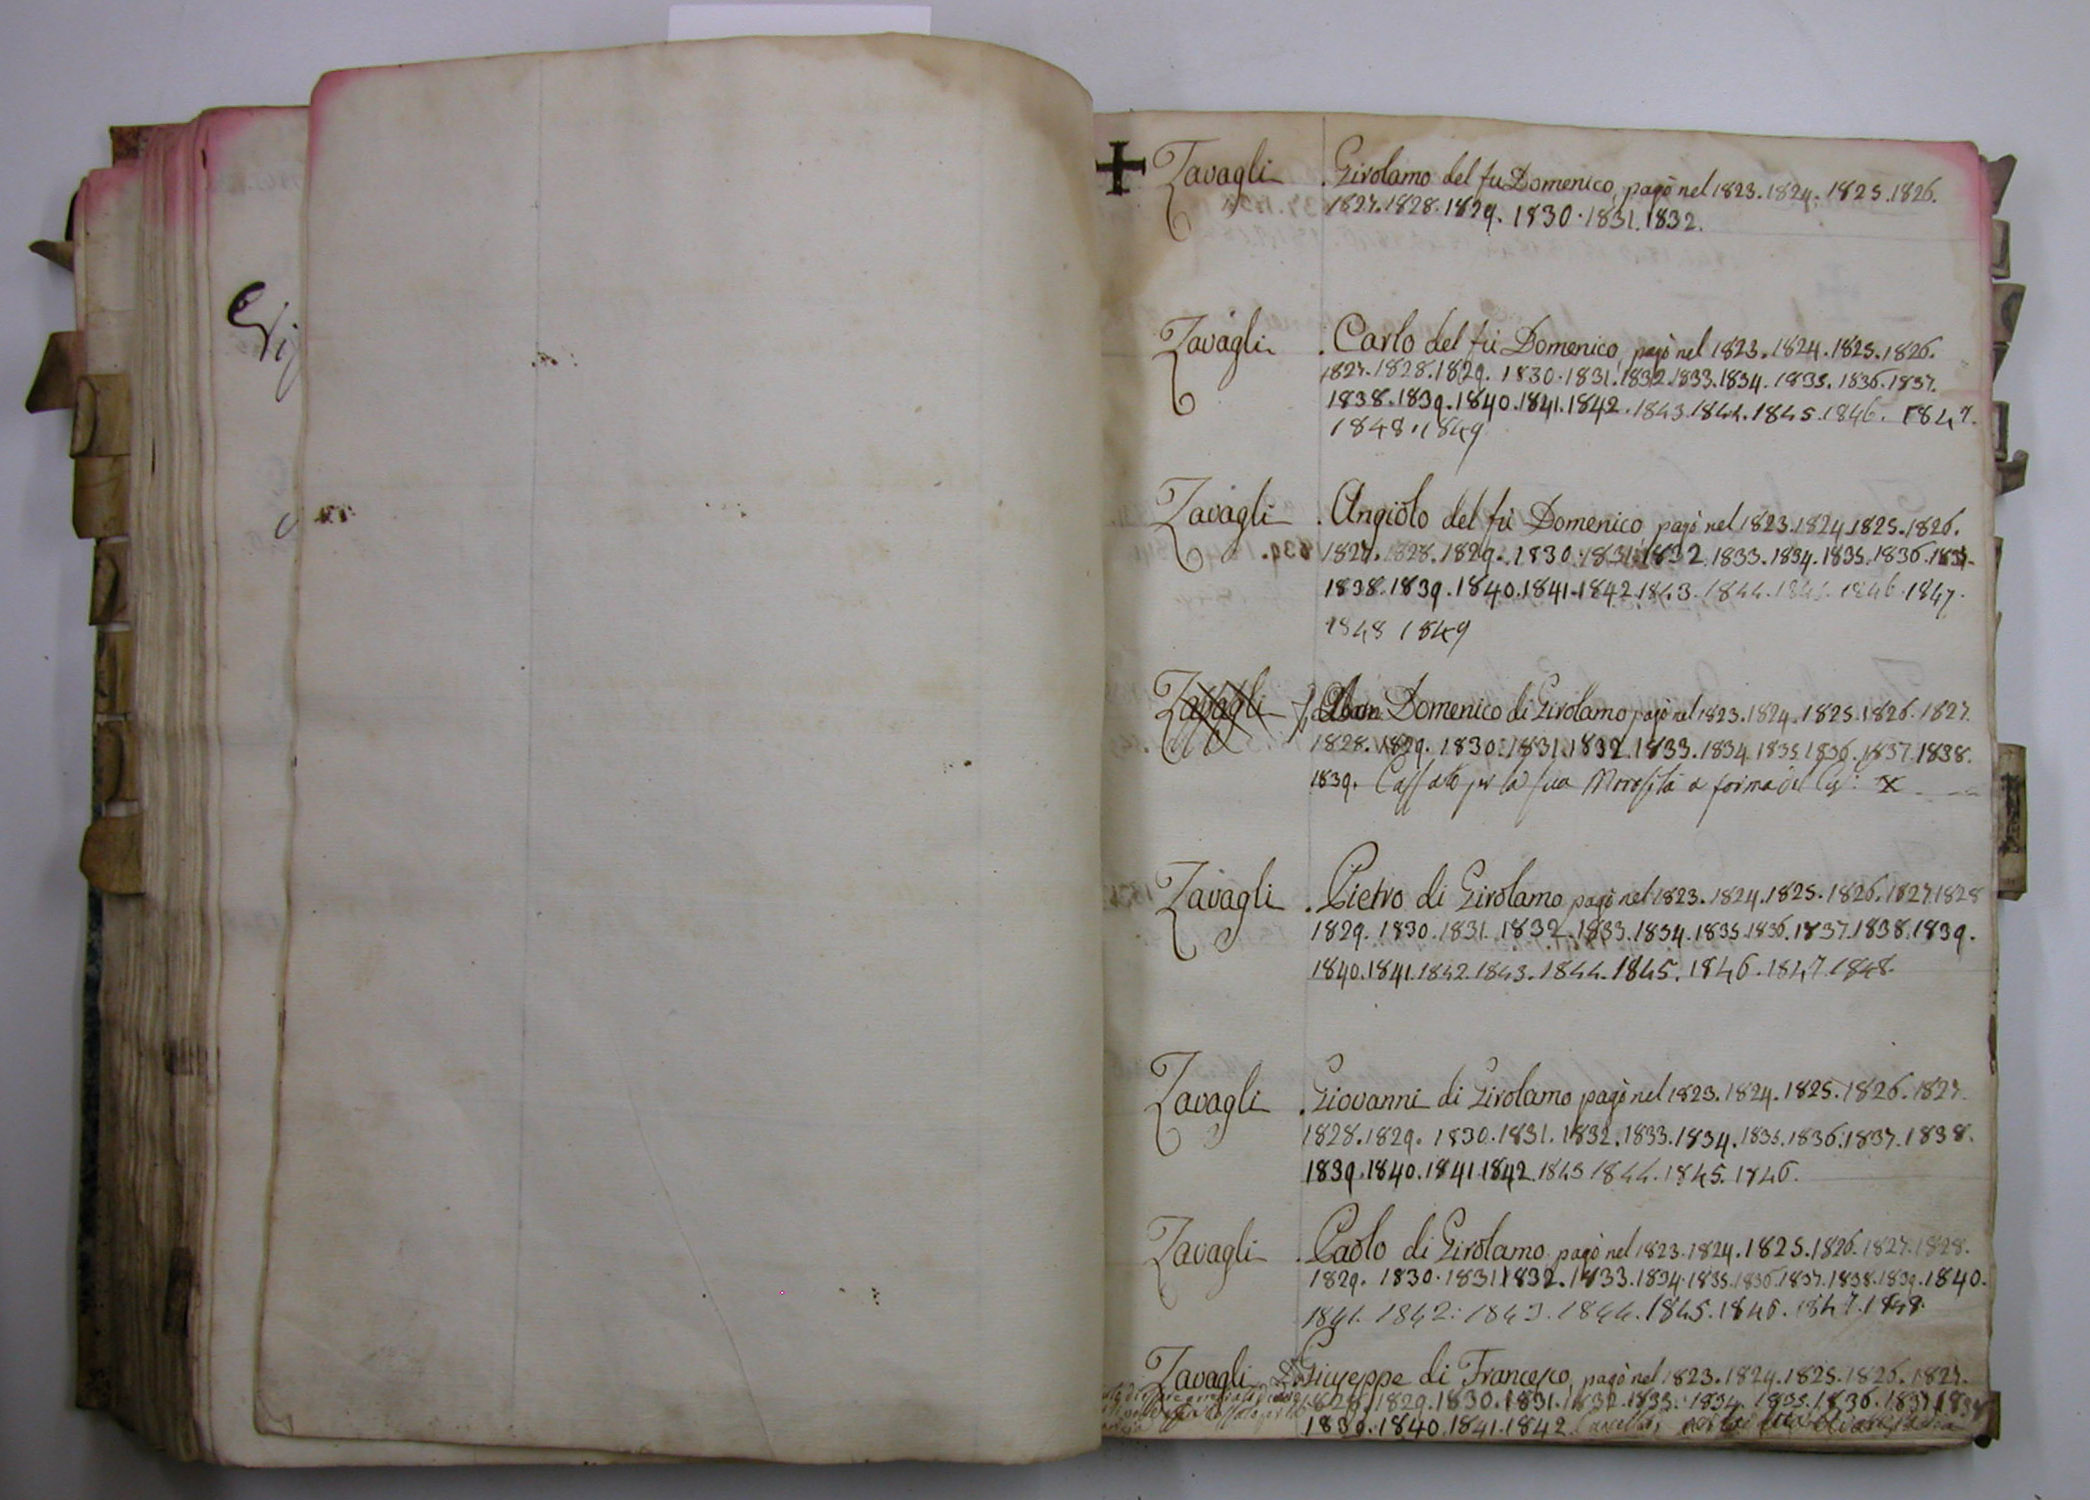 Zavagli . Girolamo del fu Domenico, pagò nel 1823. 1824. 1825. 1826.
1827. 1828. 1829. 1830. 1831. 1832.
Zavagli . Carlo del fù Domenico, pagò nel 1823. 1824. 1825. 1826.
1827. 1828. 1829. 1830. 1831. 1832. 1833. 1834. 1835. 1836. 1837.
1838. 1839. 1840. 1841. 1842. 1843. 1844. 1845. 1846. 1847.
1848. 1849
Zavagli . Angiolo del fù Domenico pagò nel 1823. 1824. 1825. 1826.
1827. 1828. 1829. 1830. 1831. 1832. 1833. 1834. 1835. 1836. 1837.
1838. 1839. 1840. 1841. 1842. 1843. 1844. 1845. 1846. 1847.
1848 1849
Zavagli Domenico di Girolamo pagò nel 1823. 1824. 1825. 1826. 1827.
1828. 1829. 1830. 1831. 1832. 1833. 1834. 1835. 1836. 1837. 1838.
1839. Cassato per la sua Morosità a forma del
Zavagli . Pietro di Girolamo pagò nel 1823. 1824. 1825. 1826. 1827. 1828
1829. 1830. 1831. 1832. 1833. 1834. 1835. 1836. 1837. 1838. 1839.
1840. 1841. 1842. 1843. 1844. 1845. 1846. 1847. 1848.
Zavagli . Giovanni di Girolamo pagò nel 1823. 1824. 1825. 1826. 1827.
1828. 1829. 1830. 1831. 1832. 1833. 1834. 1835. 1836. 1837. 1838.
1839. 1840. 1841. 1842. 1843 1844. 1845. 1846.
Zavagli . Paolo di Girolamo pagò nel 1823. 1824. 1825. 1826. 1827. 1828.
1829. 1830. 1831. 1832. 1833. 1834. 1835. 1836. 1837. 1838. 1839. 1840.
1841. 1842. 1843. 1844. 1845. 1846. 1847. 1848.
Zavagli Giuseppe di Francesco, pagò nel 1823. 1824. 1825. 1826. 1827.
1828. 1829. 1830. 1831. 1832. 1833. 1834. 1835. 1836. 1837. 1838
1839. 1840. 1841. 1842